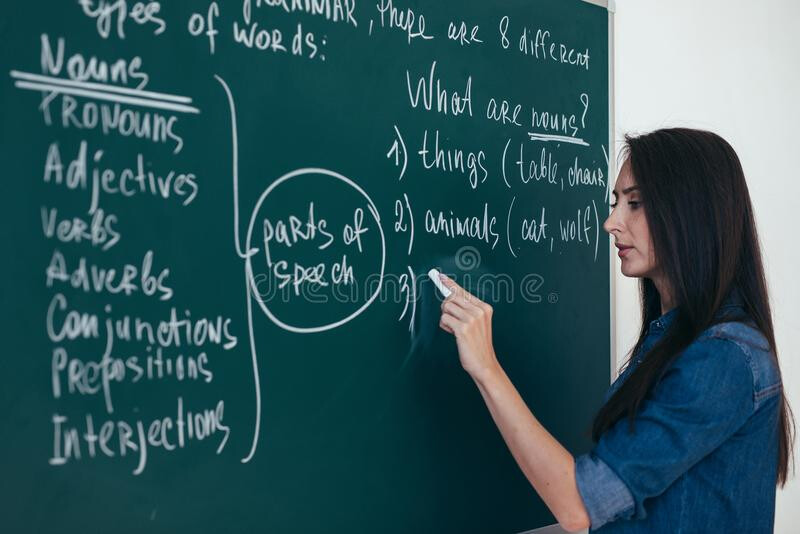 types of GRAMMAR, there are 8 different
words:
Nouns
PRONOUNS
Adjectives
Verbs
Adverbs
Conjunctions
Prepositions
Interjections
parts of
speech
What are nouns?
1) things (table, chair)
2) animals (cat, wolf)
3)
dreamstime